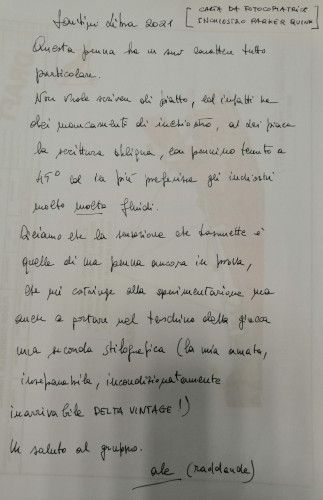 Santini Libra 2021
[CARTA DA FOTOCOPIATRICE
INCHIOSTRO PARKER QUINK]
Questa penna ha un suo carattere tutto
particolare.
Non vuole scrivere di piatto, ed infatti ha
dei mancamenti di inchiostro, a lei piace
la scrittura obliqua, con pennino tenuto a
45° ed in più preferisce gli inchiostri
molto molto fluidi.
Diciamo che la sensazione che trasmette è
quella di una penna ancora in prova,
che mi costringe alla sperimentazione ma
anche a portare nel taschino della giacca
una seconda stilografica (la mia amata,
inseparabile, incondizionatamente
inarrivabile DELTA VINTAGE!)
Un saluto al gruppo.
ale (raddaude)